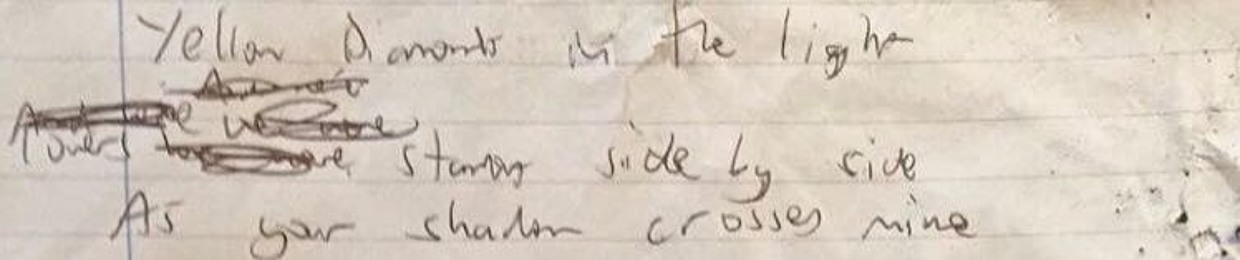 Yellow Diamonds in the light
stands side by side
As your shadow crosses mine